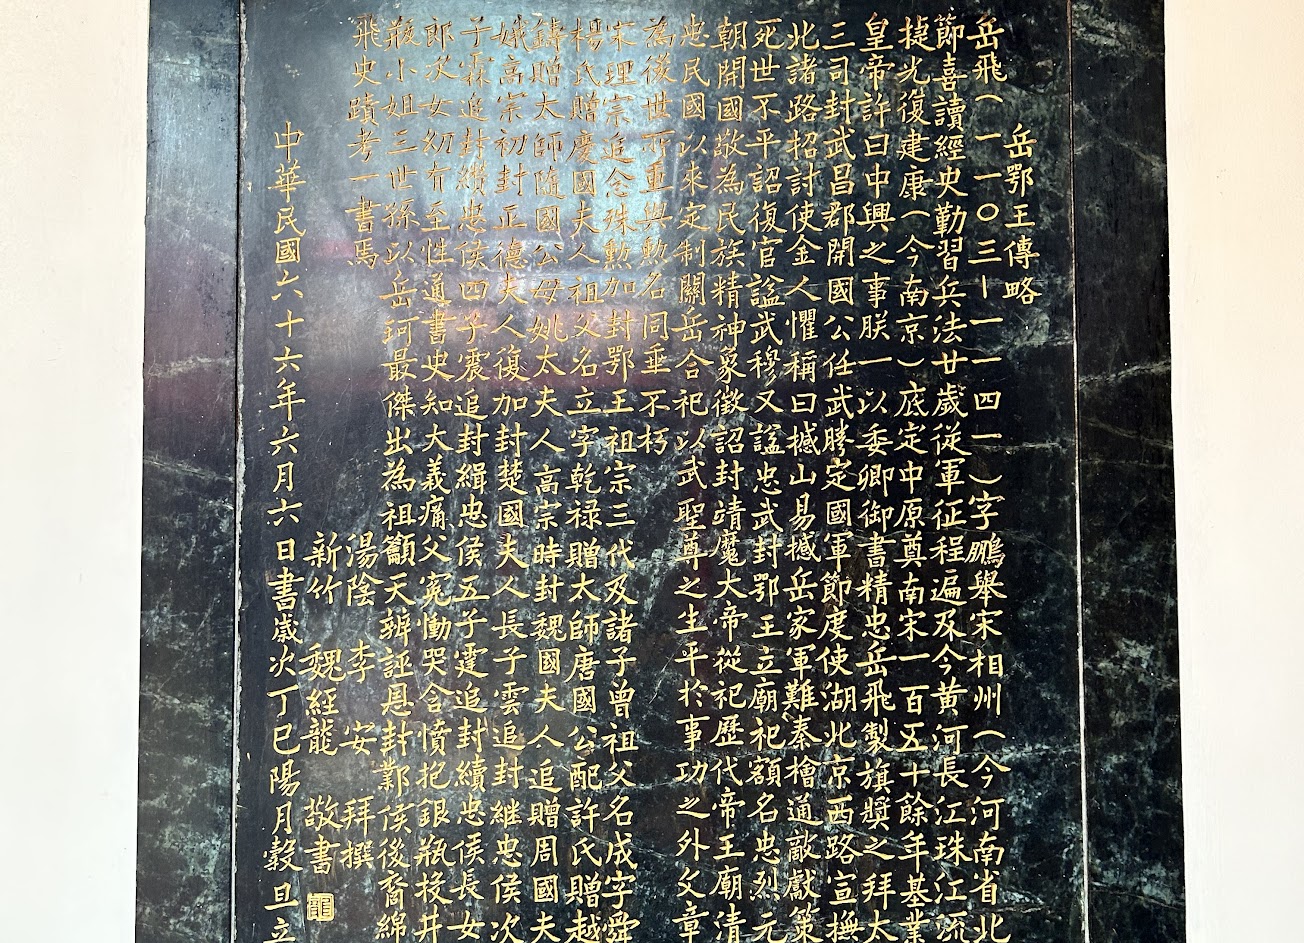 岳鄂王傳略
岳飛(一一〇三-一一四一)字鵬舉宋相州(今河南省北
節喜讀經史勤習兵法廿歲從軍征程遍及今黃河長江珠江流
捷光復建康(今南京)底定中原奠南宋一百五十餘年基業
皇帝許曰中興之事朕一以委卿御書精忠岳飛製旗獎之拜太
三司封武昌郡開國公任武勝定國軍節度使湖北京西路宣撫
北諸路招討使金人懼稱曰撼山易撼岳家軍難秦檜通敵獻策
死世不平詔復官諡武穆又諡忠武封鄂王立廟祀額名忠烈元
朝開國敬為民族精神象徵詔封靖魔大帝從祀歷代帝王廟清
忠民國以來定制關岳合祀以武聖尊之生平於事功之外文章
為後世所重與勲名同垂不朽
宋理宗追念殊勲加封鄂王祖宗三代及諸子曾祖父名成字舜
楊氏贈慶國夫人祖父名立字乾祿贈太師唐國公配許氏贈越
鑄贈太師隨國公母姚太夫人高宗時封魏國夫人追贈周國夫
娥高宗初封正德夫人復加封楚國夫人長子雲追封繼忠侯次
子霖追封纘忠侯四子震追封緝忠侯五子霆追封續忠侯長女
郎次女幼有至性通書史知大義痛父冤慟哭含憤抱銀瓶投井
瓶小姐三世孫以岳珂最傑出為祖籲天辨誣恩封鄴侯後裔綿
飛史蹟考一書焉
湯陰 李安 拜撰
新竹 魏經龍 敬書
中華民國六十六年六月六日書歲次丁巳陽月穀旦立